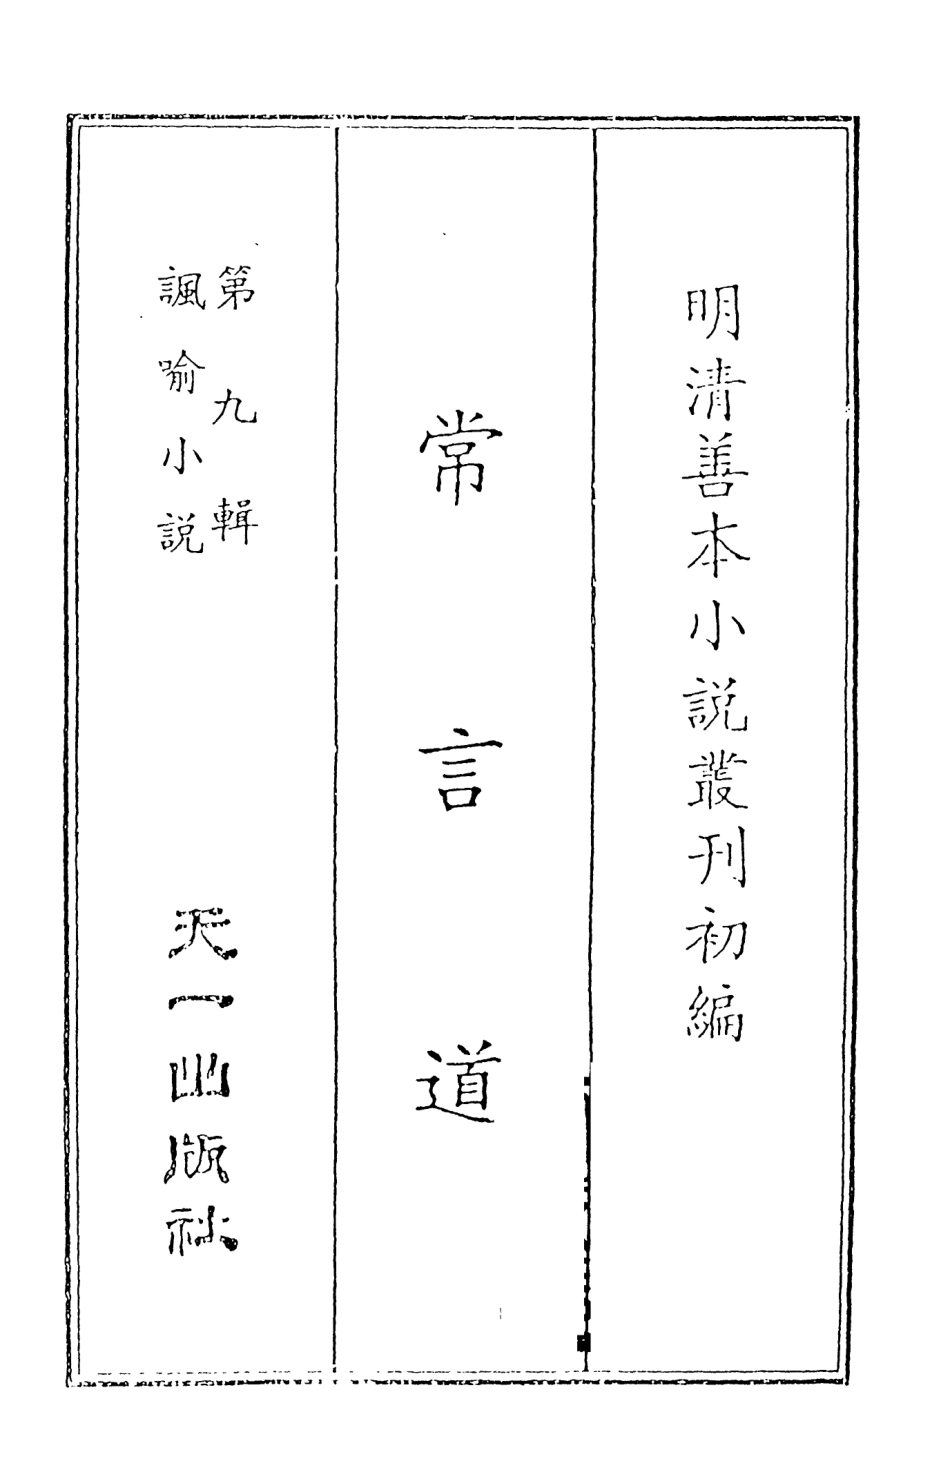 明清善本小説叢刊初編
常言道
第九輯
諷喻小説
天一出版社